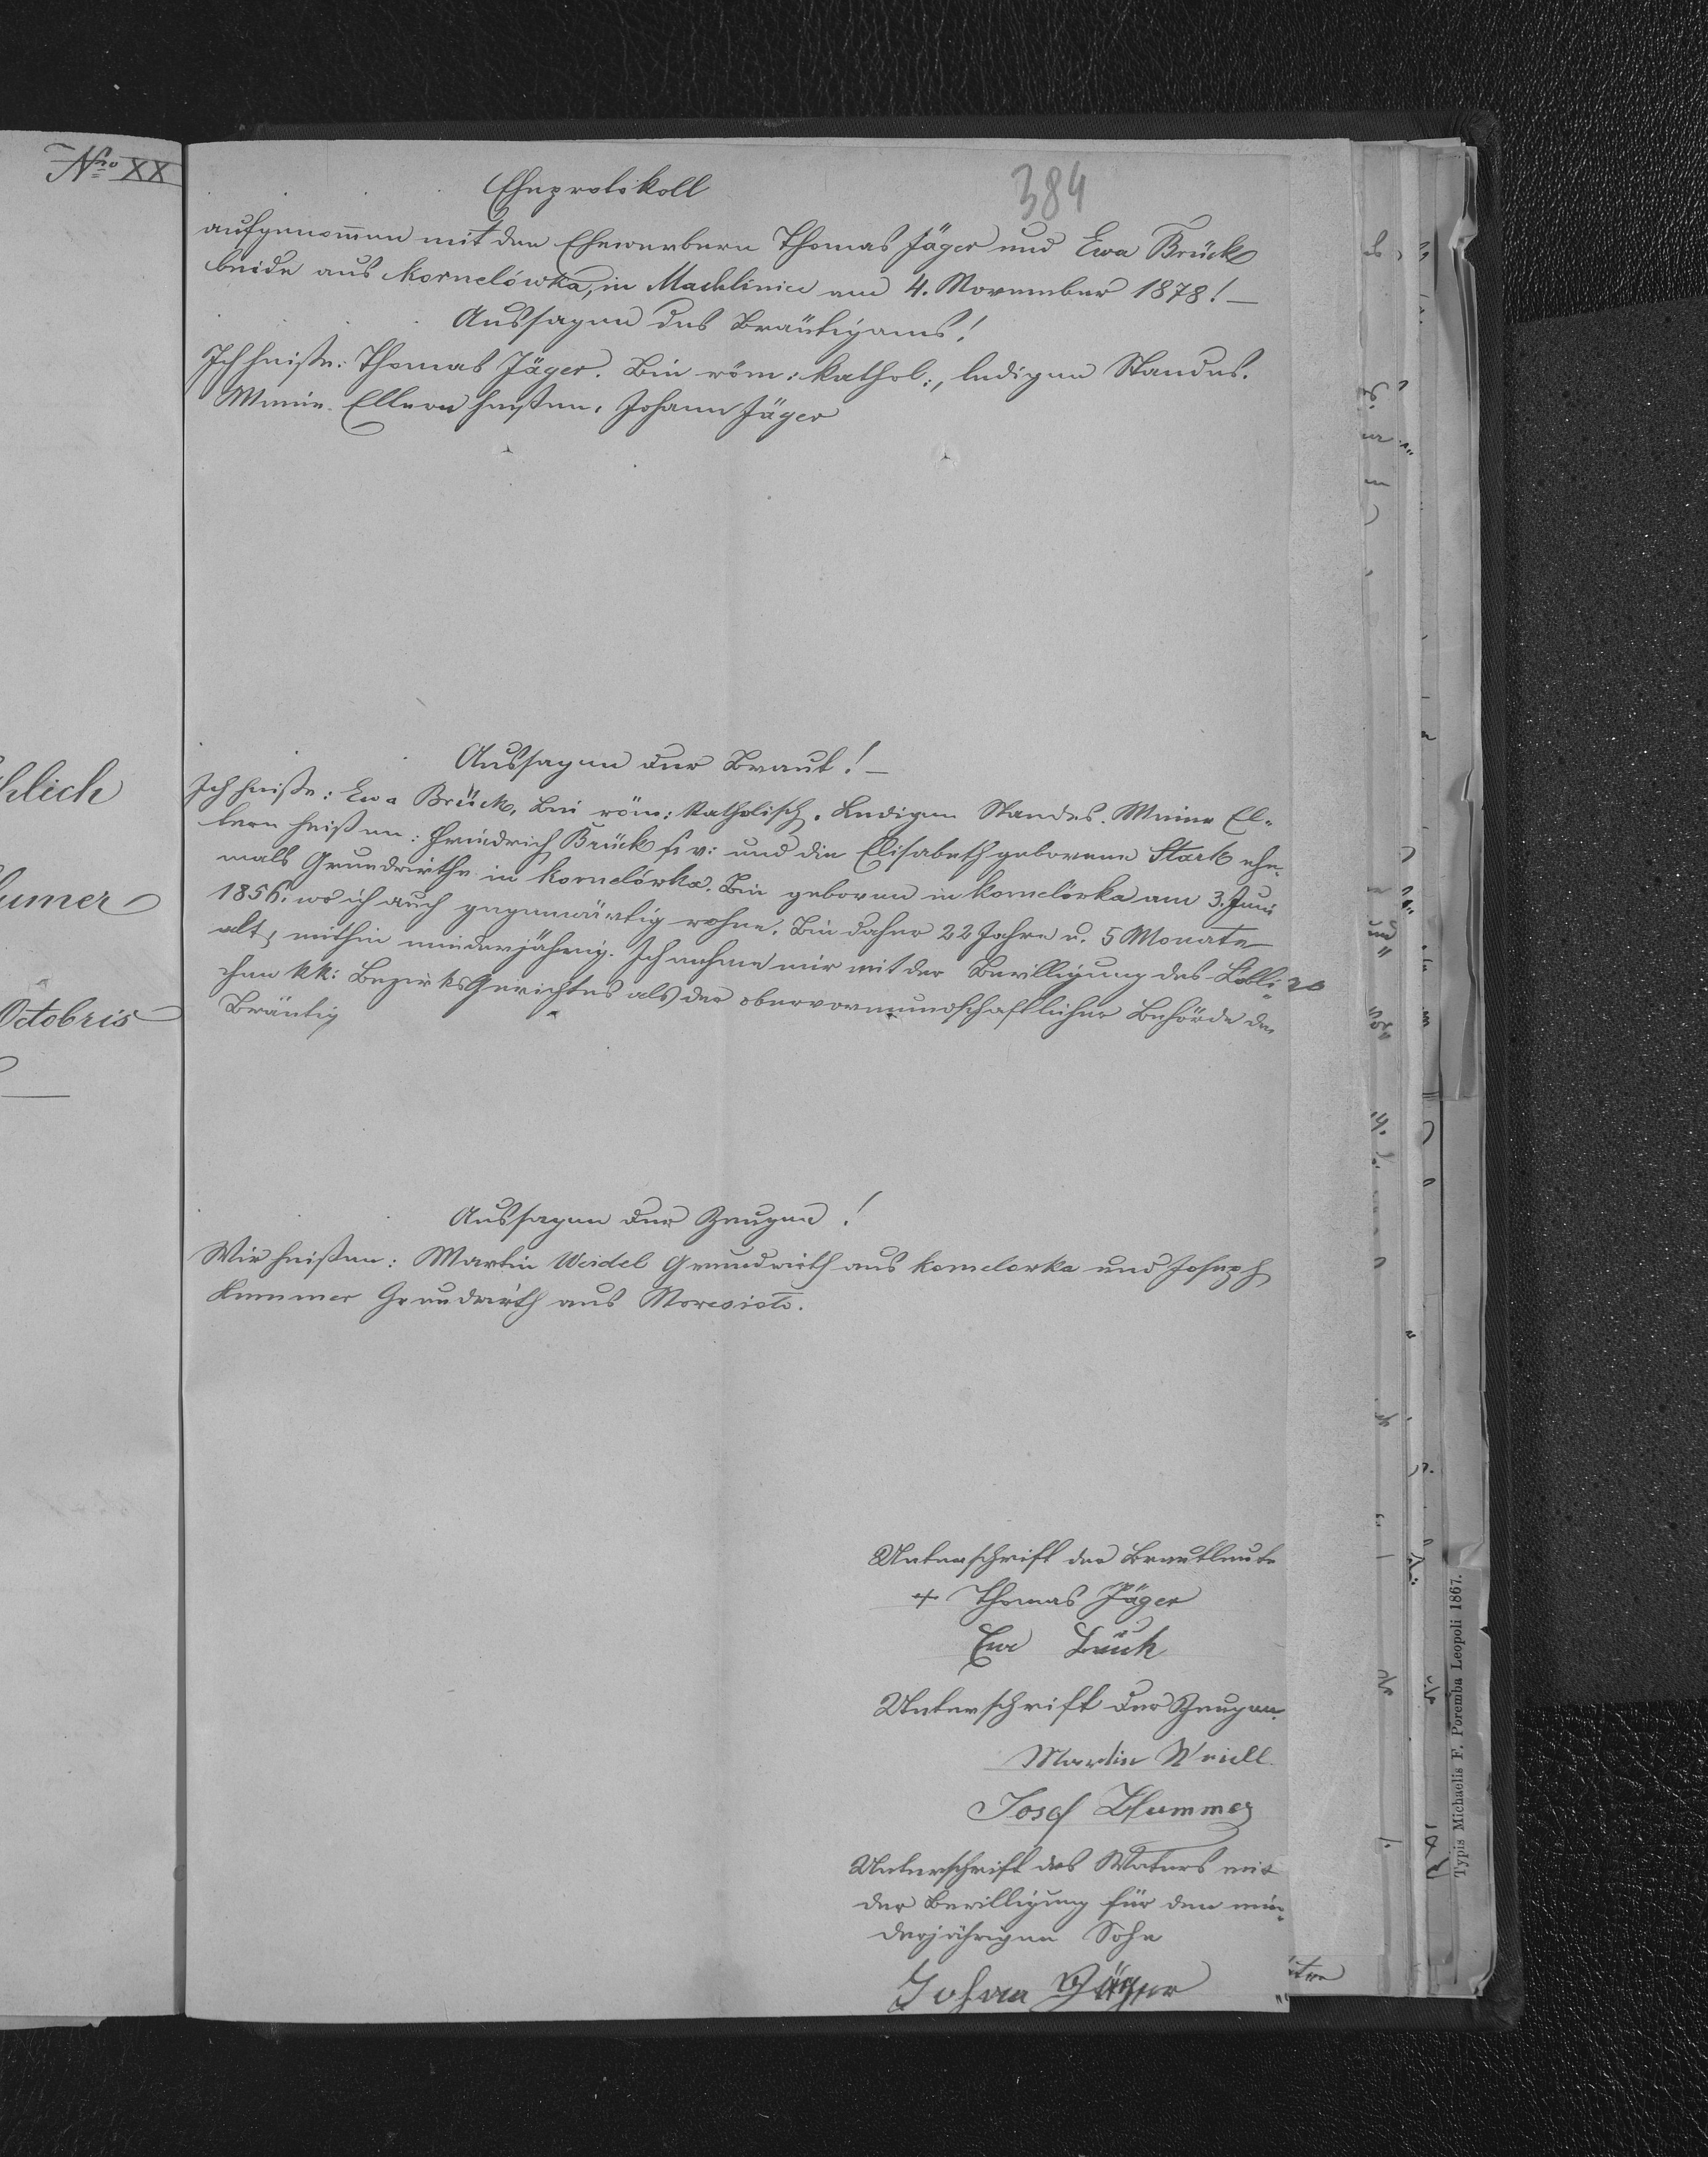 Nro XX
hlich
umer
Octobris
384
Eheprotokoll
aufgenom̄en mit den Ehewerbern Thomas Jäger und Ewa Brück
beide aus Kornelówka, in Machlinice am 4. November 1878! —
Aussagen des Bräutigams!
Ich heiße: Thomas Jäger. Bin röm: kathol:, ledigen Standes.
Meine Eltern heißen: Johann Jäger
Aussagen der Braut! —
Ich heiße: Ewa Brück, bin röm: katholisch. Ledigen Standes. Meine El-
tern heißen: Friedrich Brück und die Elisabeth geborene Stark ehe-
mals Grundwirthe in Kornelówka. Bin geboren in Kornelówka am 3. Juni
1856. wo ich auch gegenwärtig wohne. Bin daher 22 Jahre u. 5 Monate
alt, mithin minderjährig. Ich nehme mir mit der Bewilligung des Löbli-
chen kk: Bezirks Gerichtes als der obervormundschaftlicher Behörde den
Bräutig
Aussagen der Zeugen!
Wir heißen: Martin Weidel Grundwirth aus Kornelowka und Joseph
Kummer Grundwirth aus
Unterschrift der Brautleute
+ Thomas Jäger
Ewa Brück
Unterschrift der Zeugen
Martin
Josef Kummer
Unterschrift des Vaters mit
der Bewilligung für den min-
derjährigen Sohn
Johann Jäger
Typis Michaelis F. Poremba Leopoli 1867.